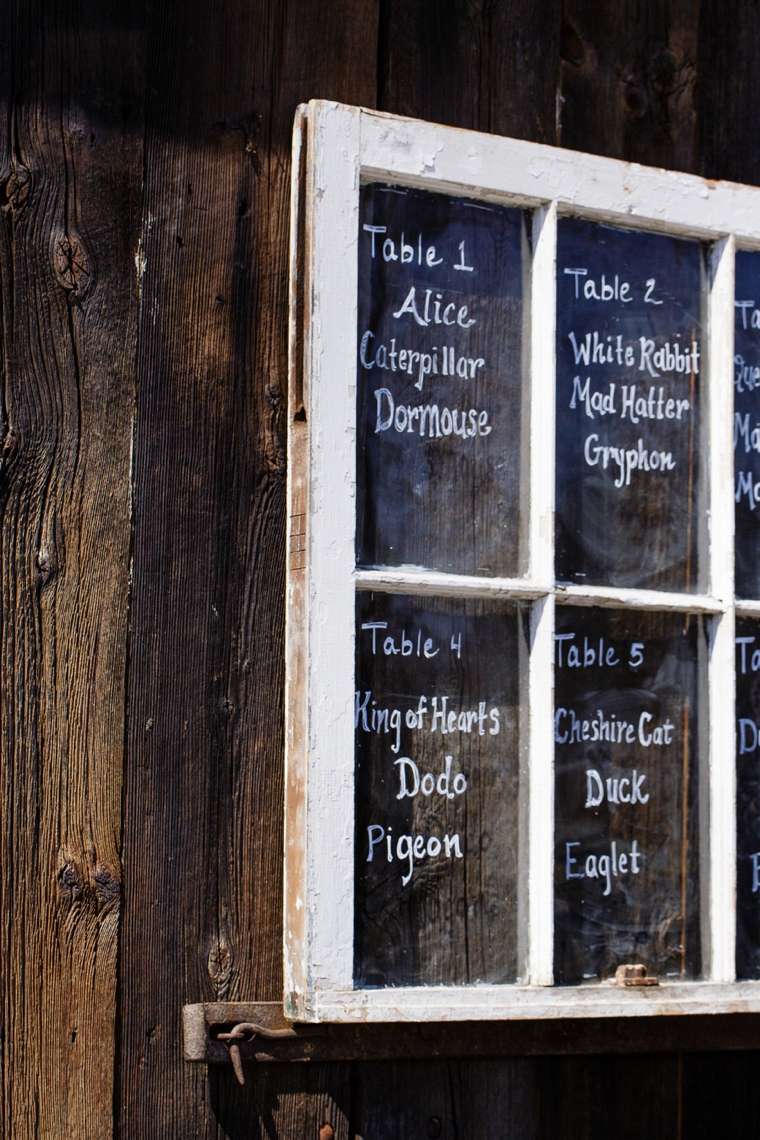 Table 1
Alice
Caterpillar
Dormouse
Table 2
White Rabbit
Mad Hatter
Gryphon
Table 4
King of Hearts
Dodo
Pigeon
Table 5
Cheshire Cat
Duck
Eaglet